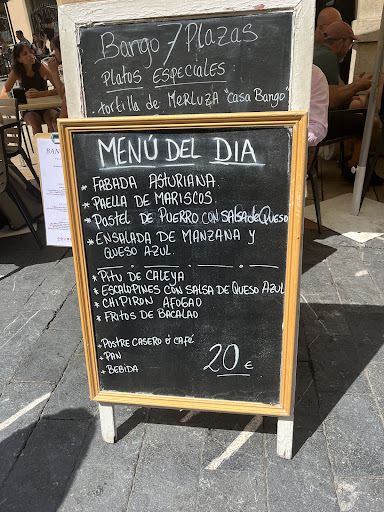 Bango / Plazas
Platos ESPECIALES
. tortilla de MERLUZA "Casa Bango"
MENÚ DEL DIA
* FABADA ASTURIANA
* PAELLA DE MARISCOS.
* PASTEL DE PUERRO CON SALSA de QUESO
* ENSALADA DE MANZANA Y
QUESO AZUL.
* PITU DE CALEYA
* ESCALOPINES CON SALSA DE QUESO AZUL
* CHIPIRON AFOGAO
* FRITOS DE BACALAO
- POSTRE CASERO Ó CAFÉ
- PAN
- BEBIDA
20 €